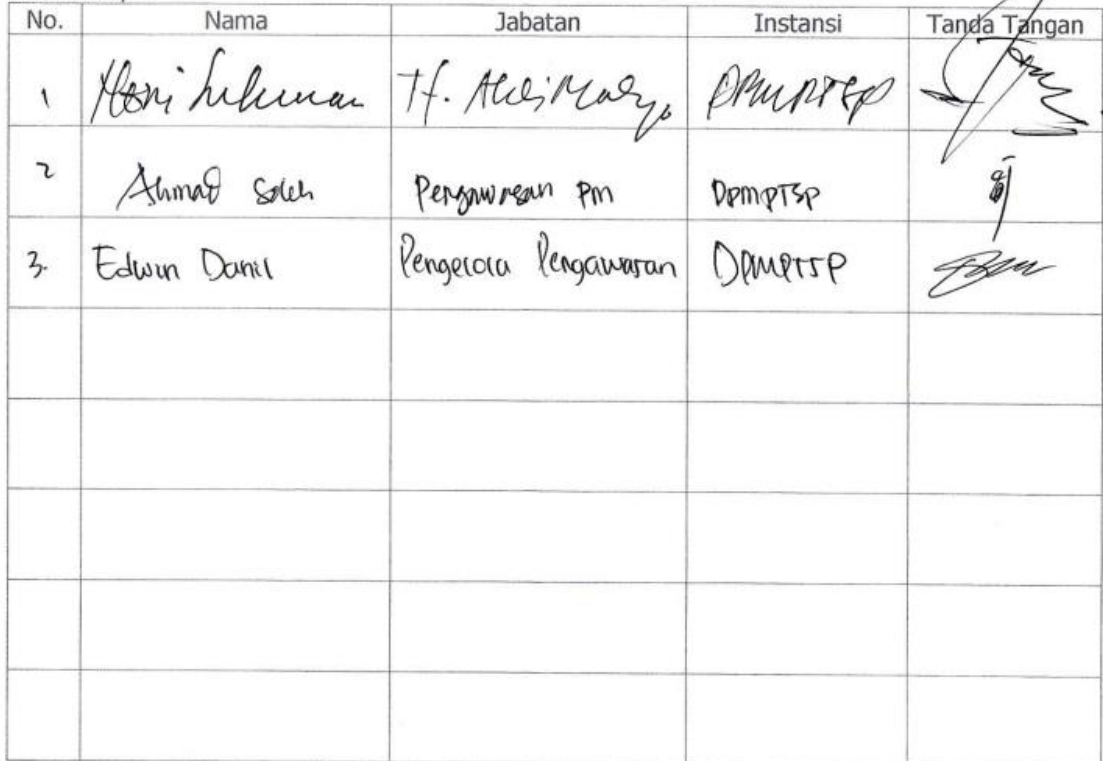 No. Nama Jabatan Instansi Tanda Tangan
1 Heri Sukman Jf. Ahli Madya DPMPTSP
2 Ahmad Soleh Pengawasan PM DPMPTSP
3. Edwin Danil Pengelola Pengawasan DPMPTSP